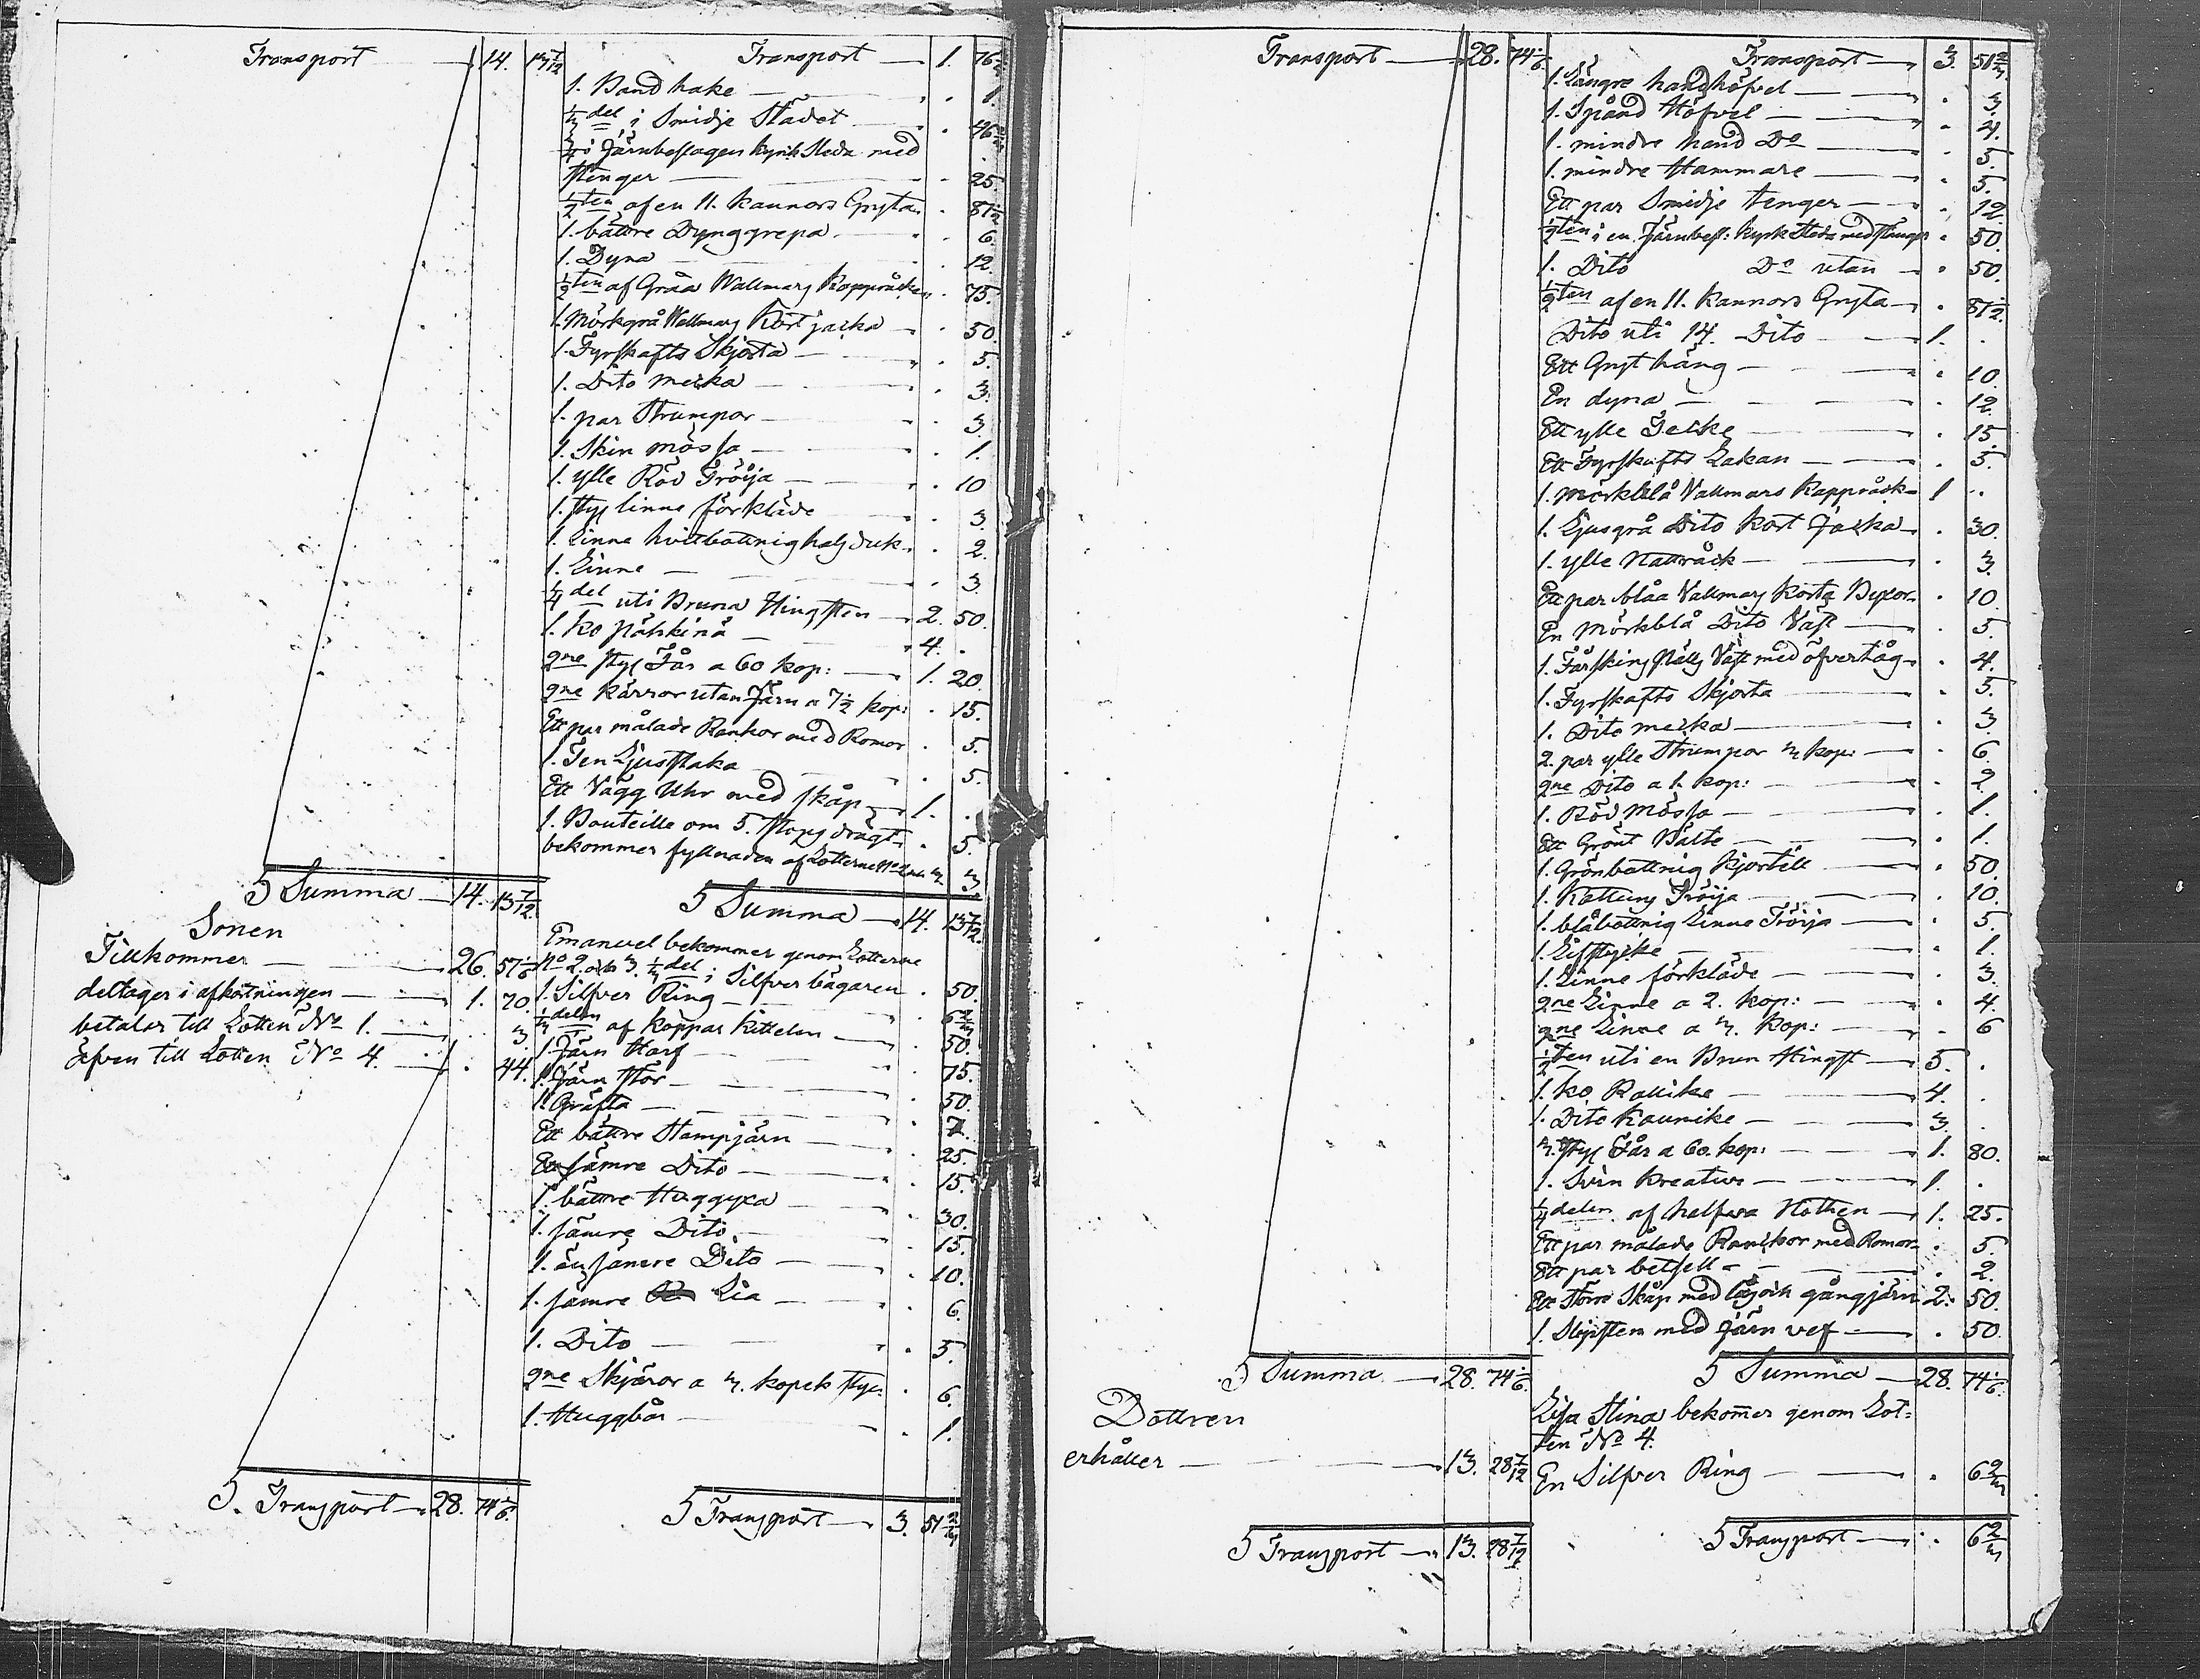 Transport 14. 13 7/12
S Summa 14. 13 7/12
Sonen
Tillkommer 26. 57 1/6
deltager i afkortningen 1. 70.
betalar till Lotten No 1. . 3.
äfven till Lotten No 4. . 44.
S. Transport 28. 74 1/6.
Transport 1. 76 2/3
1. Band hake . 1.
1/3 del i Smidje Städet . 46 2/3
i Järnbeslagen kyrk Släda med
stenger . 25.
1/2 ten af en 11. kannors Gryta . 87 1/2
1. bättre Dynggrepa . 6.
1. Dyna . 12.
1/2 ten af Gråa Wallmars Kappråcken . 75.
1. Mörkgrå Wallmars Kort jacka . 50.
1. Fyrskafts Skjorta . 5.
1. Dito mecka . 3.
1. par Strumpor . 3.
1. Skin mössa . 1.
1. ylle Röd Tröija . 10
1. sty linne förkläde . 3.
1. Linne hvitbottnig hals duk . 2.
1. Linne . 3
1/4 del uti Bruna Hingsten 2. 50.
1. ko Pähkinä 4. .
2ne sty Får a 60 kop: 1. 20.
2ne kärror utan Järn a 7 1/2 kop: . 15.
Ett par målade Rankor med Romor . 5.
1. Ten Ljusstaka . 5.
Ett Vägg Uhr med skåp 1. .
1. Bouteille om 5. stops drägt . 5.
bekommer fyllnaden af Lotterne No 2 och 3. . 3.
S Summa 14. 13 7/12.
Emanuel bekommer genom Lotterne
No 2. och 3. 1/3 del i Silfver bägaren . 50.
1. Silfver Ring . 6 2/3
1/3 delen af koppar kittelen . 50.
1. Järn Harf . 75.
1. Järn stör . 50.
1. Gräfta . 7.
Ett bättre Stampjärn . 25.
Ett sämre Dito . 15.
1. bättre Huggyxa . 30.
1. sämre Dito . 15.
1. än sämre Dito . 10.
1. sämre Lia . 6.
1. Dito . 5.
2ne Skjäror a 3. kopek sty: . 6.
1. Huggbår . 1.
S Transport 3. 51 2/3
Transport 28. 74 1/6.
S Summa 28. 74 1/6.
Dottren
erhåller 13. 28 7/12
S Transport 13. 28 7/12
Transport 3. 51 2/3
1. Längre handhöfvel . 3.
1. Spånd Höfvel . 4.
1. mindre hand Do . 5.
1. mindre Hammare . 5.
Ett par Smidje tenger . 12.
1/2 ten i en Järnbesl: kyrk Släda med stenger . 50.
1. Dito Do utan . 50.
1/2 ten af en 11. kannors Gryta . 87 1/2.
Dito uti 14. Dito 1. .
Ett Gryt häng . 10.
En dyna . 12.
Ett ylle Täcke . 15.
Ett Fyrskafts Lakan . 5.
1. Mörkblå Vallmars Kappråck 1 ..
1. Ljusgrå Dito kort Jacka . 30.
1. ylle Nattråck . 3.
Ett par blåa Vallmars korta Byxor . 10.
En Mörkblå Dito Väst . 5.
1. Fårskins Väst med öfvertåg . 4.
1. Fyrskafts Skjorta . 5.
1. Dito mecka . 3.
2. par ylle Strumpor 3 kop: . 6.
2ne Dito a 1. kop: . 2.
1. Röd Mössa . 1.
Ett Grönt Bälte . 1.
1. Grönbottnig kjortell . 50.
1. Kattuns Tröija . 10.
1. blåbottnig Linne Tröija . 5.
1. Lifstycke . 1.
1. Linne förkläde . 3.
2ne Linne a 2. kop: . 4.
2ne Linne a 3. kop: . 6
1/2 ten uti en Brun Hingst 5. .
1. ko Rallike 4. .
1. Dito Kaunike 3. .
3. sty Får a 60. kop: 1. 80.
1. Svin Kreatur 1. .
1/4 delen af halfva Nothen 1. 25.
Ett par målade Rankor med Romor . 5.
Ett par betsell . 2.
Ett större Skåp med lås och gångjärn 2. 50.
1. Slipsten med Järn vef . 50.
S Summa 28. 74 1/6.
Lisa Stina bekommer genom Lot=
ten No 4.
En Silfver Ring . 6 2/3
S Transport . 6 2/3